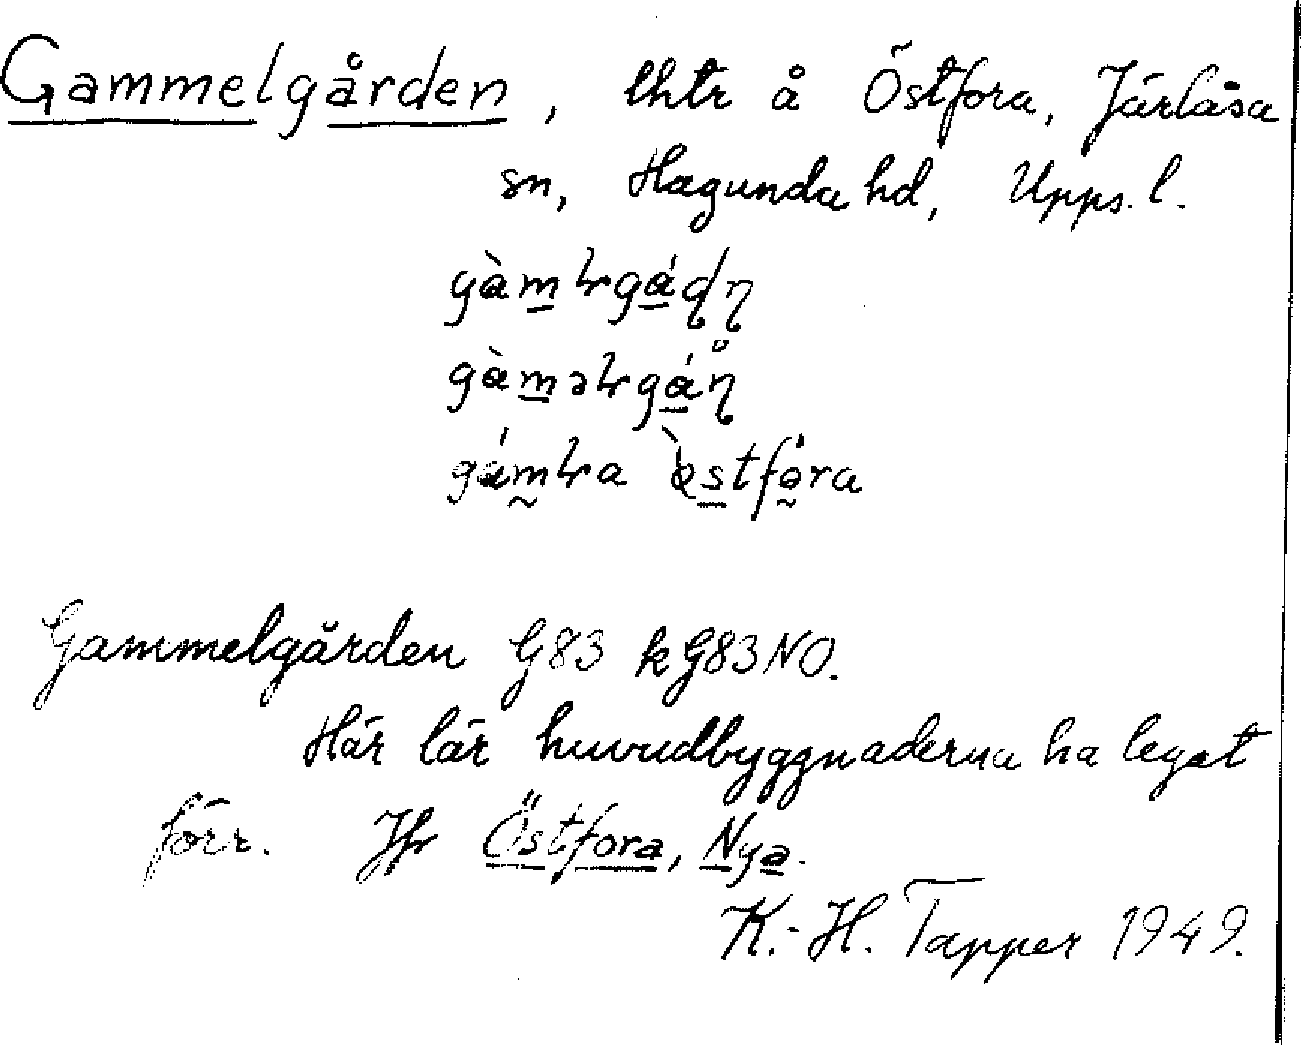 Gammelgården, lhtr å Östfora, Järlåsa
sn, Hagunda hd, Upps. l.
Gammelgården G83 kG83NO.
Här lär huvudbyggnaderna ha legat
förr. Jfr Östfora, Nya.
K.-H. Tapper 1949.